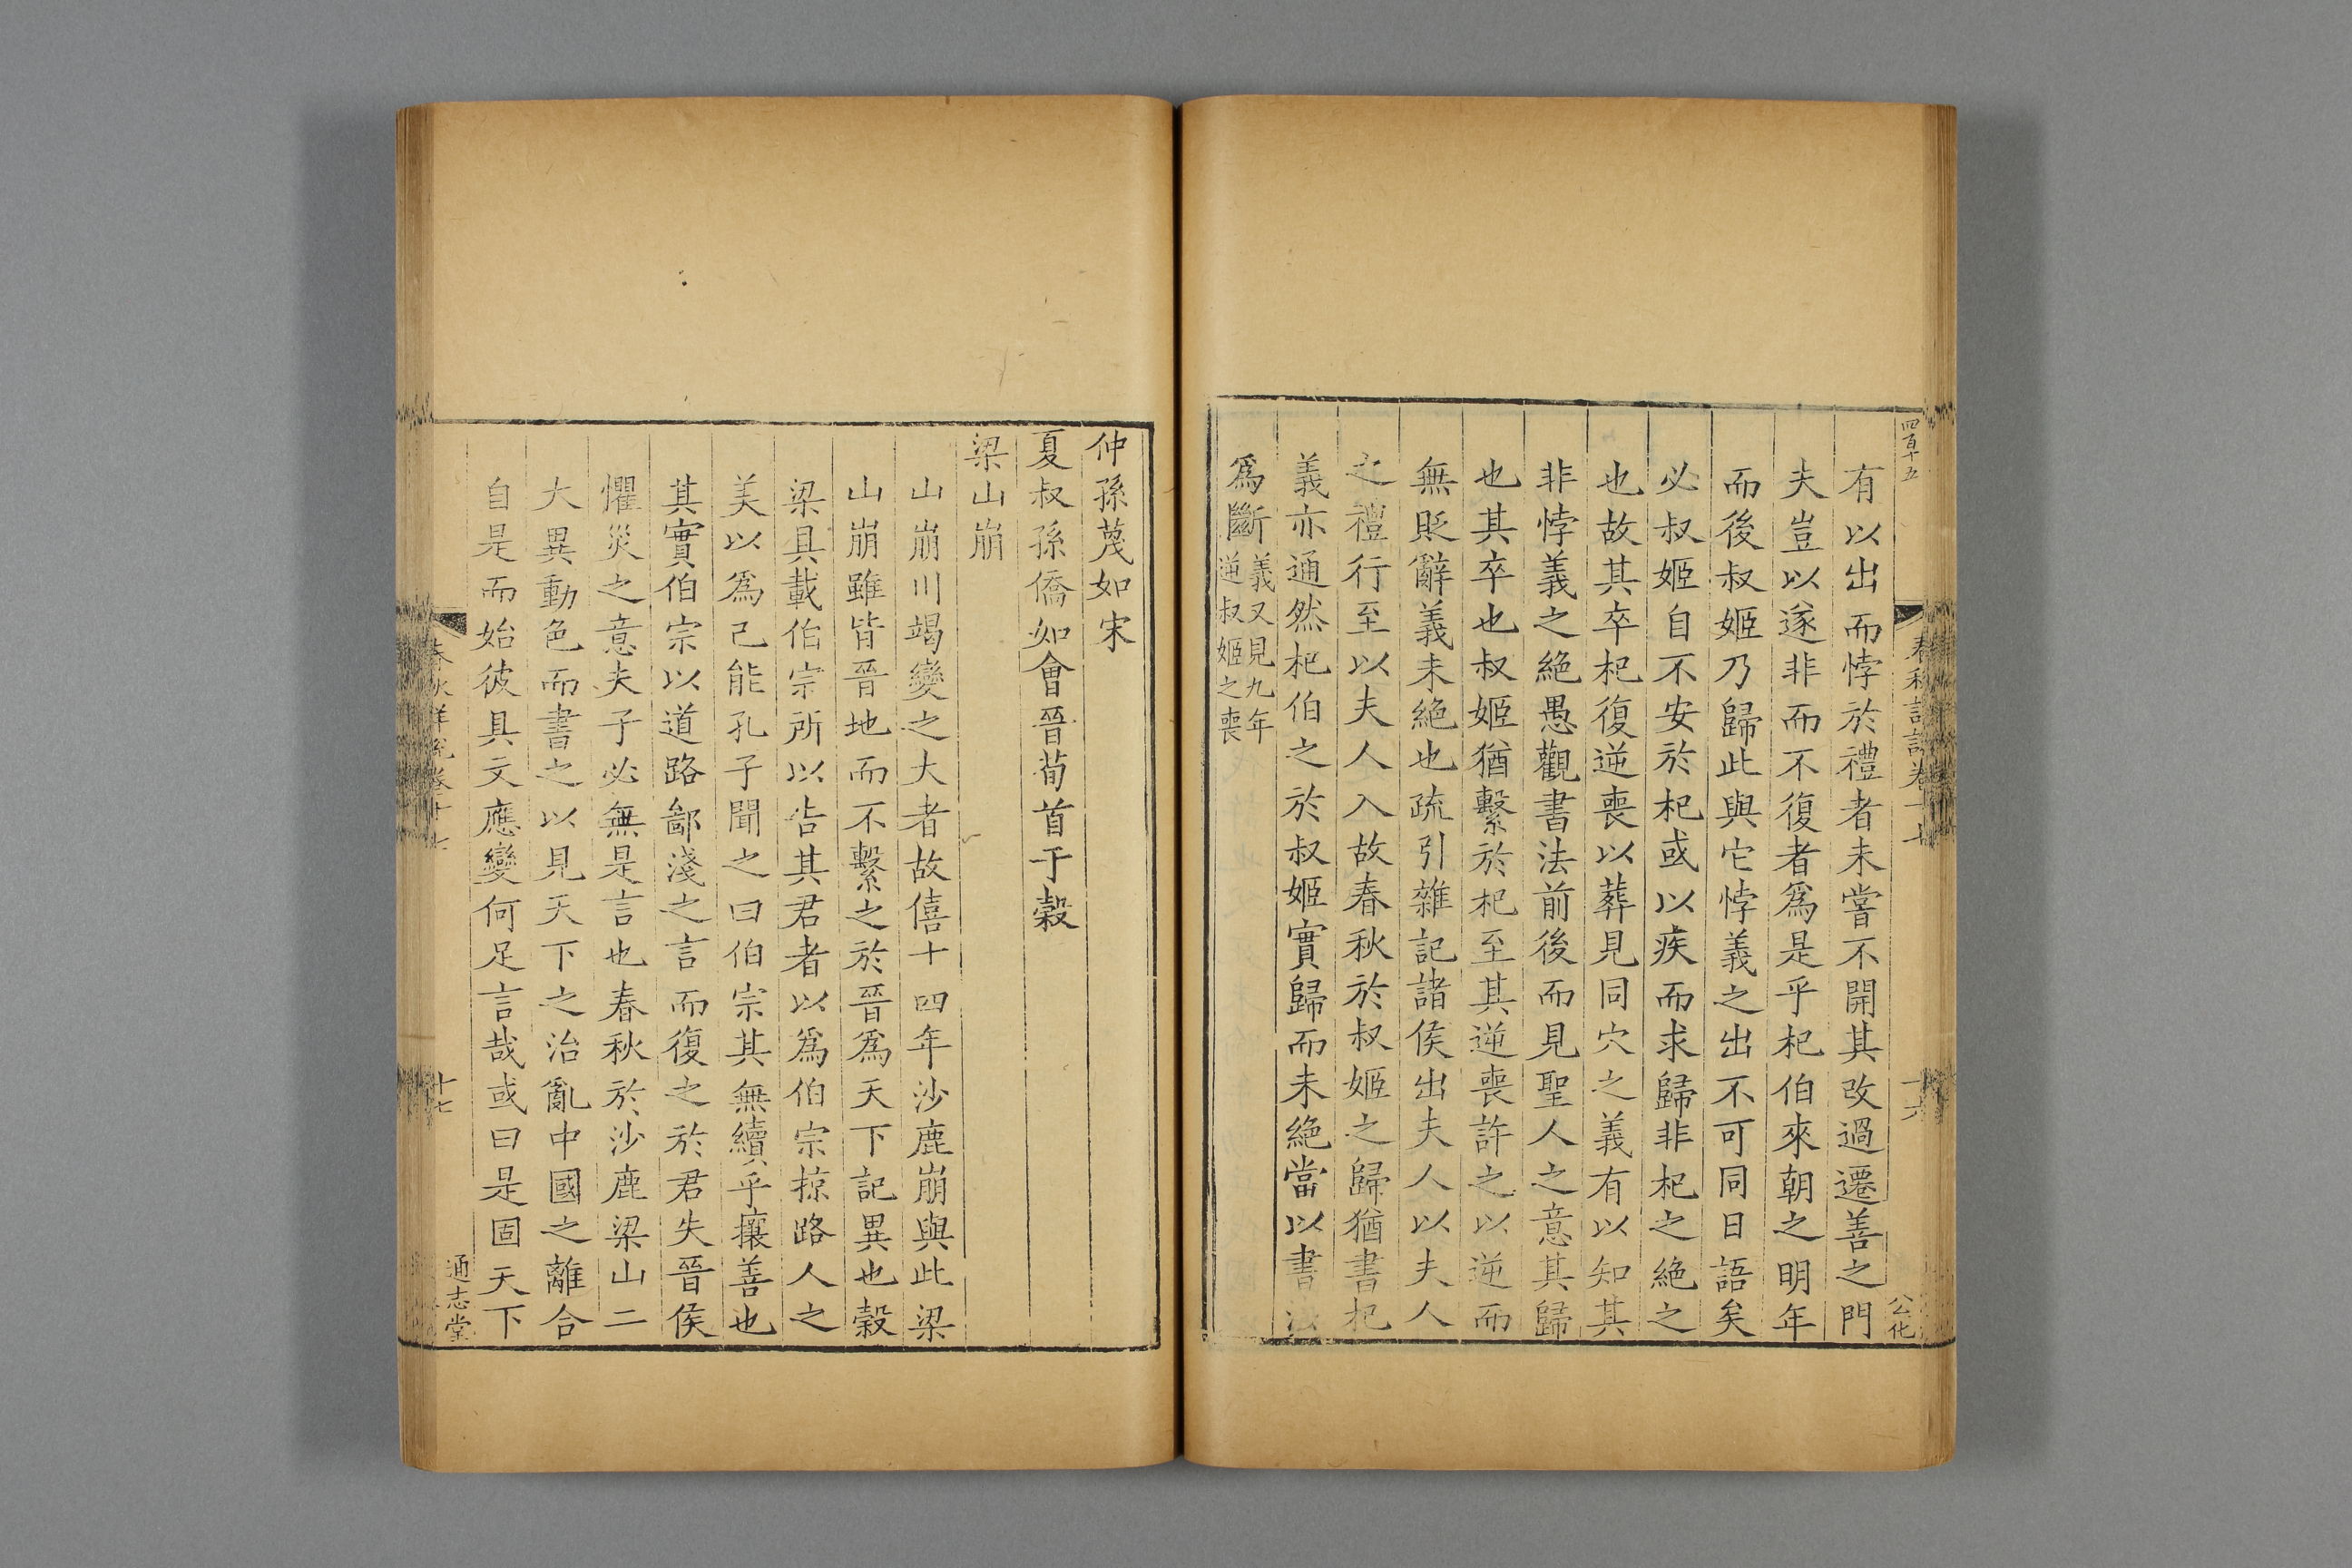 四百十五
春秋詳說卷十七
十六
公化
有以出而悖於禮者未嘗不開其改過遷善之門
夫豈以遂非而不復者爲是乎杞伯來朝之明年
而後叔姬乃歸此與它悖義之出不可同日語矣
必叔姬自不安於杞或以疾而求歸非杞之絶之
也故其卒杞復逆喪以葬見同穴之義有以知其
非悖義之絶愚觀書法前後而見聖人之意其歸
也其卒也叔姬猶繫於杞至其逆喪許之以逆而
無貶辭義未絶也疏引雜記諸侯出夫人以夫人
之禮行至以夫人入故春秋於叔姬之歸猶書杞
義亦通然杞伯之於叔姬實歸而未絶當以書法
爲斷義又見九年
逆叔姬之喪
仲孫蔑如宋
夏叔孫僑如會晉荀首于穀
梁山崩
山崩川竭變之大者故僖十四年沙鹿崩與此梁
山崩雖皆晉地而不繫之於晉爲天下記異也穀
梁具載伯宗所以告其君者以爲伯宗掠路人之
美以爲己能孔子聞之曰伯宗其無績乎攘善也
其實伯宗以道路鄙淺之言而復之於君失晉侯
懼災之意夫子必無是言也春秋於沙鹿梁山二
大異動色而書之以見天下之治亂中國之離合
自是而始彼具文應變何足言哉或曰是固天下
春秋詳說卷十七
十七
通志堂